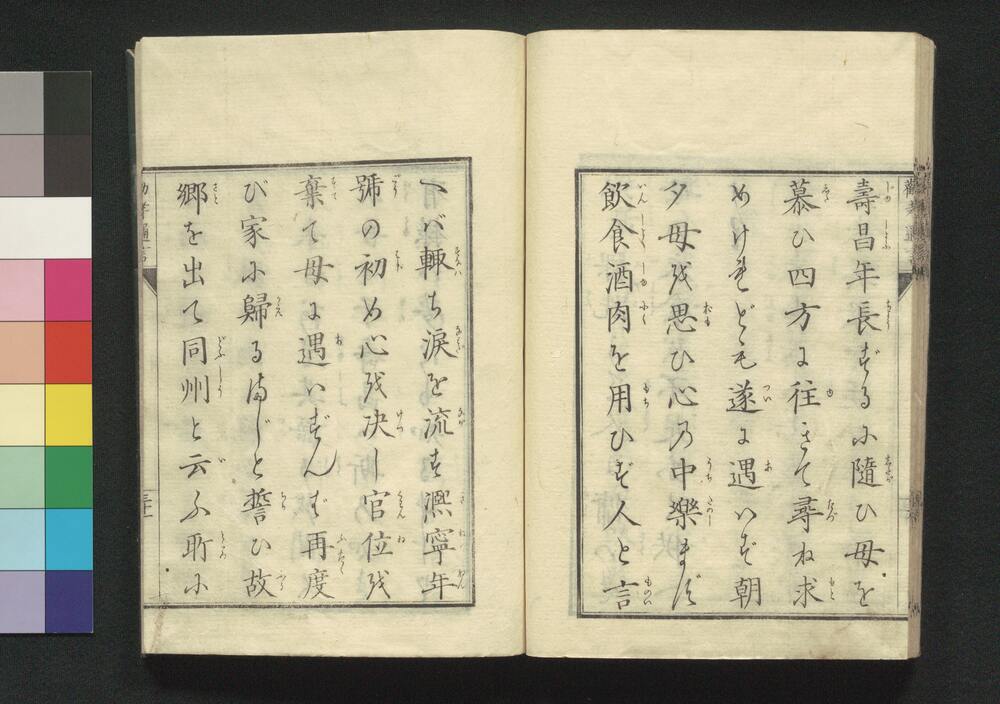 壽昌年長ずるに隨ひ母を
慕ひ四方に往きて尋ね求
めけれども遂に遇いず朝
夕母を思ひ心の中樂まず
飲食酒肉を用ひず人と言
へバ輙ち涙を流す凞寧年
號の初め心を决し官位を
棄て母に遇いずんば再度
び家に歸るまじと誓ひ故
郷を出て同州と云ふ所に